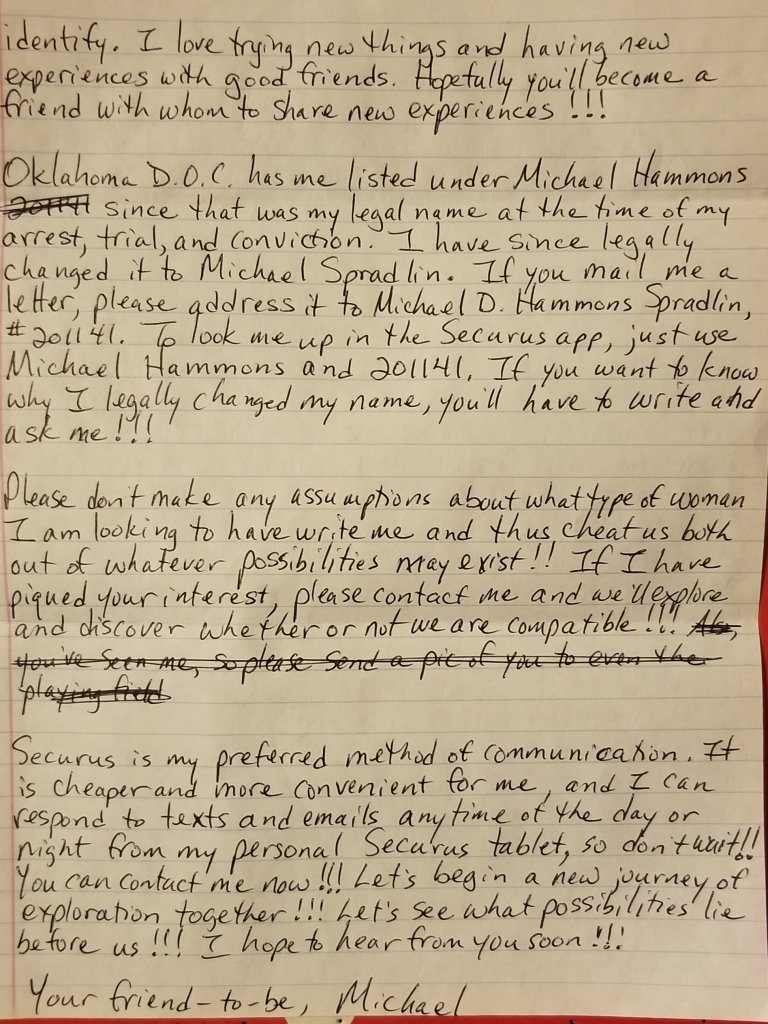 identify. I love trying new things and having new
experiences with good friends. Hopefully you'll become a
friend with whom to share new experiences !!!
Oklahoma D.O.C. has me listed under Michael Hammons
201141 since that was my legal name at the time of my
arrest, trial, and conviction. I have since legally
changed it to Michael Spradlin. If you mail me a
letter, please address it to Michael D. Hammons Spradlin,
# 201141. To look me up in the Securus app, just use
Michael Hammons and 201141. If you want to know
why I legally changed my name, you'll have to write and
ask me !!!
Please don't make any assumptions about what type of woman
I am looking to have write me and thus cheat us both
out of whatever possibilities may exist!! If I have
piqued your interest, please contact me and we'll explore
and discover whether or not we are compatible !!! Also,
you've seen me, so please send a pic of you to even the
playing field
Securus is my preferred method of communication. It
is cheaper and more convenient for me, and I can
respond to texts and emails anytime of the day or
night from my personal Securus tablet, so don't wait!!
You can contact me now !!! Let's begin a new journey of
exploration together !!! Let's see what possibilities lie
before us !!! I hope to hear from you soon !!!
Your friend-to-be, Michael